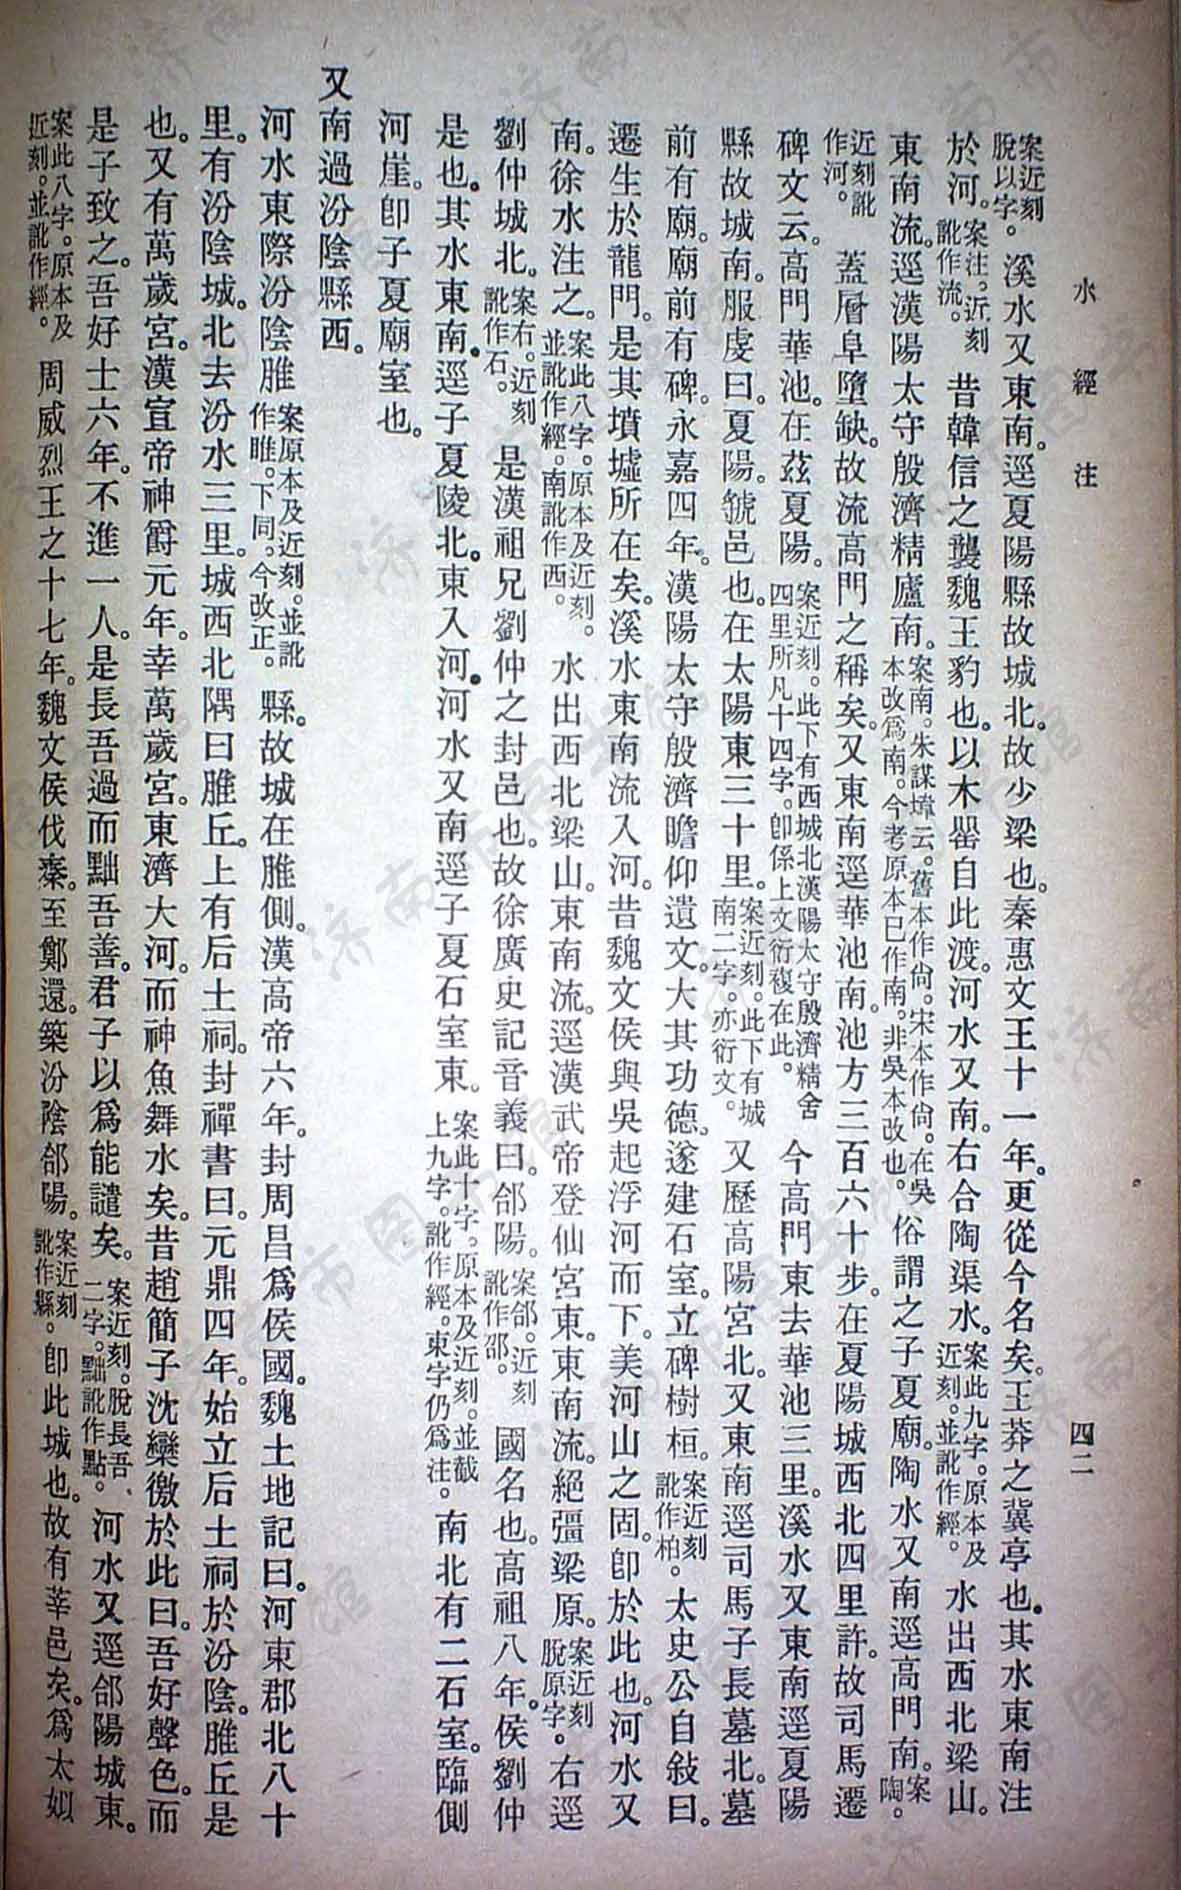 水經注
四二
案近刻脫以字。溪水又東南。逕夏陽縣故城北。故少梁也。秦惠文王十一年。更從今名矣。王莽之冀亭也。其水東南注
於河。案注。近刻訛作流。昔韓信之襲魏王豹也。以木罌自此渡。河水又南。右合陶渠水。案此九字。原本及近刻。並訛作經。水出西北梁山。
東南流。逕漢陽太守殷濟精廬南。案南。朱謀㙔云。舊本作尙。宋本作尙。在吳本改爲南。今考原本已作南。非吳本改也。俗謂之子夏廟。陶水又南逕高門南。案陶。
近刻訛作河。蓋層阜墮缺。故流高門之稱矣。又東南逕華池南。池方三百六十步。在夏陽城西北四里許。故司馬遷
碑文云。高門華池。在茲夏陽。案近刻。此下有西城北漢陽太守殷濟精舍四里所凡十四字。卽係上文衍複在此。今高門東去華池三里。溪水又東南逕夏陽
縣故城南。服虔曰。夏陽。虢邑也。在太陽東三十里。案近刻。此下有城南二字。亦衍文。又歷高陽宮北。又東南逕司馬子長墓北。墓
前有廟。廟前有碑。永嘉四年。漢陽太守殷濟瞻仰遺文。大其功德。遂建石室。立碑樹桓。案近刻訛作柏。太史公自敍曰。
遷生於龍門。是其墳墟所在矣。溪水東南流入河。昔魏文侯與吳起浮河而下。美河山之固。卽於此也。河水又
南。徐水注之。案此八字。原本及近刻。並訛作經。南訛作西。水出西北梁山。東南流。逕漢武帝登仙宮東。東南流。絕彊梁原。案近刻脫原字。右逕
劉仲城北。案右。近刻訛作石。是漢祖兄劉仲之封邑也。故徐廣史記音義曰。郃陽。案郃。近刻訛作邵。國名也。高祖八年。侯劉仲
是也。其水東南。逕子夏陵北。東入河。河水又南逕子夏石室東。案此十字。原本及近刻。並截上九字。訛作經。東字仍爲注。南北有二石室。臨側
河崖。卽子夏廟室也。
又南過汾陰縣西。
河水東際汾陰脽案原本及近刻。並訛作睢。下同。今改正。縣。故城在脽側。漢高帝六年。封周昌爲侯國。魏土地記曰。河東郡北八十
里。有汾陰城。北去汾水三里。城西北隅曰脽丘。上有后土祠。封禪書曰。元鼎四年。始立后土祠於汾陰。脽丘是
也。又有萬歲宮。漢宣帝神爵元年。幸萬歲宮。東濟大河。而神魚舞水矣。昔趙簡子沈欒徼於此曰。吾好聲色。而
是子致之。吾好士六年。不進一人。是長吾過而黜吾善。君子以爲能譴矣。案近刻。脫長吾二字。黜訛作點。河水又逕郃陽城東。
案此八字。原本及近刻。並訛作經。周威烈王之十七年。魏文侯伐秦。至鄭還。築汾陰郃陽。案近刻訛作縣。卽此城也。故有莘邑矣。爲太姒